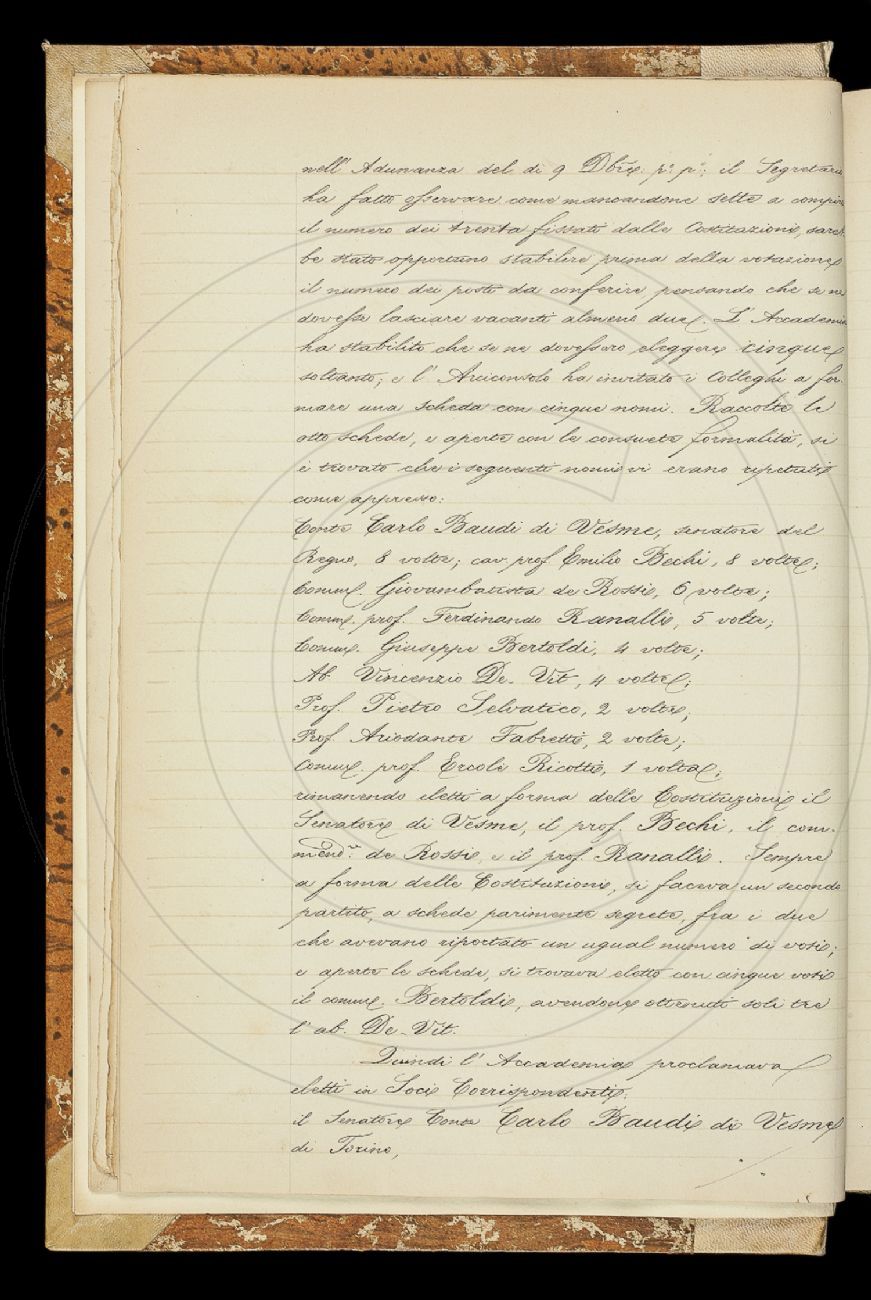 nell' Adunanza del dì 9 Dbre. p.º p.º; il Segretario
ha fatto osservare come mancandone sette a compire
il numero dei trenta fissati dalle Costituzioni, sareb-
be stato opportuno stabilire prima della votazione
il numero dei posti da conferire, pensando che se ne
dovesse lasciare vacanti almeno due. L' Accademia
ha stabilito che se ne dovessero eleggere cinque
soltanto; e l' Arciconsolo ha invitato i Colleghi a for-
mare una scheda con cinque nomi. Raccolte le
otto schede, e aperte con le consuete formalità, si
è trovato che i seguenti nomi vi erano ripetuti
come appresso:
Conte Carlo Baudi di Vesme, senatore del
Regno, 8 volte; cav. prof. Emilio Bechi, 8 volte;
Comm. Giovambatista de Rossi, 6 volte;
Comm. prof. Ferdinando Ranalli, 5 volte;
Comm. Giuseppe Bertoldi, 4 volte;
Ab. Vincenzio De-Vit, 4 volte;
Prof. Pietro Selvatico, 2 volte;
Prof. Ariodante Fabretti, 2 volte;
Comm. prof. Ercole Ricotti, 1 volta;
rimanendo eletti a forma delle Costituzioni il
Senatore di Vesme, il prof. Bechi, il com-
mend.re de Rossi, e il prof. Ranalli. Sempre
a forma delle Costituzioni, si faceva un secondo
partito, a schede parimente segrete, fra i due
che avevano riportato un ugual numero di voti;
e aperte le schede, si trovava eletto con cinque voti
il comm. Bertoldi, avendone ottenuti soli tre
l' ab. De-Vit.
Quindi l' Accademia proclamava
eletti in Soci Corrispondenti:
il Senatore Conte Carlo Baudi di Vesme
di Torino,